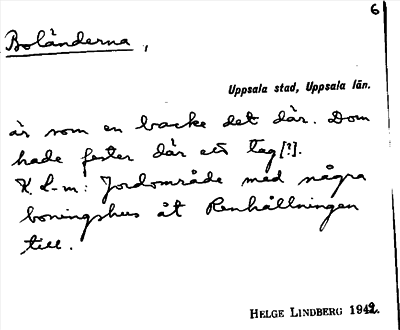 6
Boländerna,
Uppsala stad, Uppsala län.
är som en backe det där. Dom
hade fester där ett tag [?].
K. L-m: Jordområde med några
boningshus åt Renhållningen
till.
HELGE LINDBERG 1942.